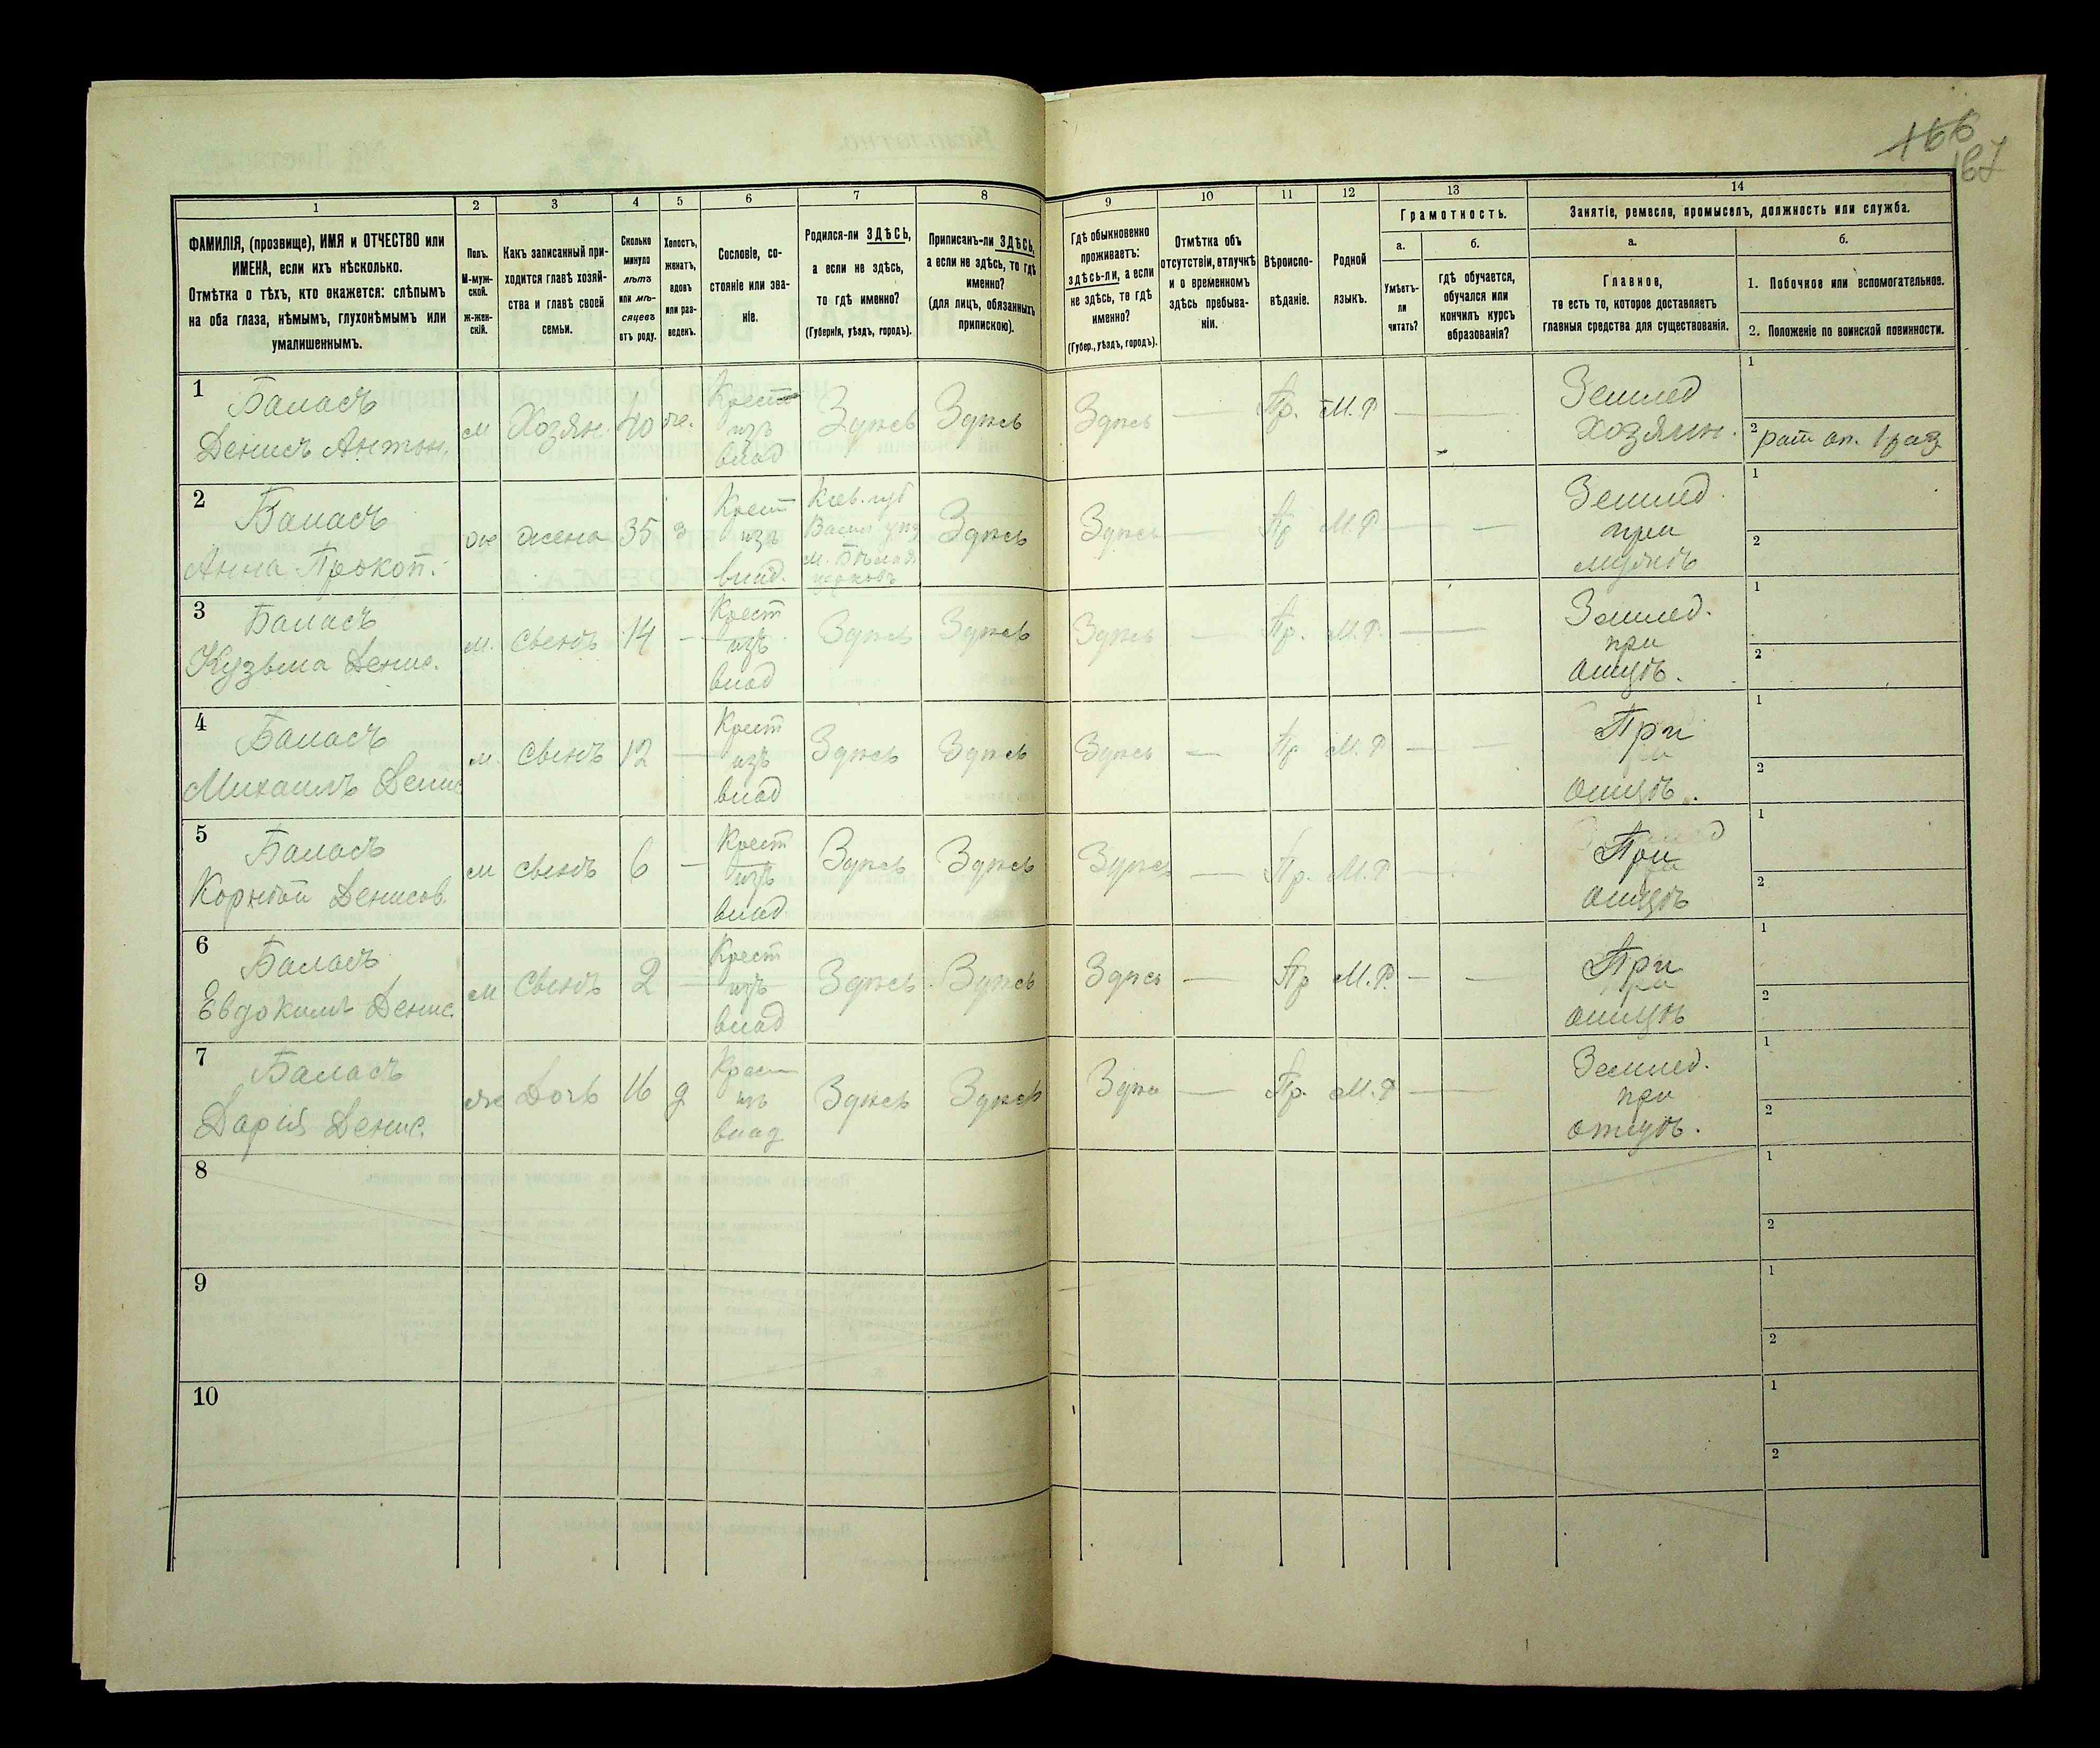 166
167
1
2
3
4
5
6
7
8
9
10
11
12
13
14
ФАМИЛІЯ, (прозвище), ИМЯ и ОТЧЕСТВО или
ИМЕНА, если ихъ нѣсколько.
Отмѣтка о тѣхъ, кто окажется: слѣпымъ
на оба глаза, нѣмымъ, глухонѣмымъ или
умалишеннымъ.
Полъ.
М-муж-
ской.
ж-жен-
скій.
Какъ записанный при-
ходится главѣ хозяй-
ства и главѣ своей
семьи.
Сколько
минуло
лѣтъ
или мѣ-
сяцевъ
отъ роду.
Холостъ,
женатъ,
вдовъ
или раз-
веденъ.
Сословіе, со-
стояніе или зва-
ніе.
Родился-ли ЗДѢСЬ,
а если не здѣсь,
то гдѣ именно?
(Губернія, уѣздъ, городъ).
Приписанъ-ли ЗДѢСЬ,
а если не здѣсь, то гдѣ
именно?
(для лицъ, обязанныхъ
припискою).
Гдѣ обыкновенно
проживаетъ:
здѣсь-ли, а если
не здѣсь, то гдѣ
именно?
(Губер., уѣздъ, городъ).
Отмѣтка объ
отсутствіи, отлучкѣ
и о временномъ
здѣсь пребыва-
ніи.
Вѣроиспо-
вѣданіе.
Родной
языкъ.
Грамотность.
а.
Умѣетъ-
ли
читать?
б.
гдѣ обучается,
обучался или
кончилъ курсъ
образованія?
Занятіе, ремесло, промыселъ, должность или служба.
а.
Главное,
то есть то, которое доставляетъ
главныя средства для существованія.
б.
1. Побочное или вспомогательное.
2. Положеніе по воинской повинности.
1
Баласъ
Денисъ Антон.
м
Хозян.
40
же.
Крест
изъ
влад
Здѣсь
Здѣсь
Здѣсь
—
Пр.
М.Р
—
Землед
Хозяин.
1
2 рат оп. 1 раз
2
Баласъ
Анна Прокоп.
ж
жена
35
з
Крест
изъ
влад.
Кіев. губ
Васил уѣз
м. Бѣлая
церковь
Здѣсь
Здѣсь
—
Пр
М.Р
— —
Землед.
при
мужѣ
1
2
3
Баласъ
Кузьма Денис.
м.
сынъ
14
—
Крест
изъ
влад
Здѣсь
Здѣсь
Здѣсь
—
Пр.
М.Р.
—
Землед.
при
отцѣ.
1
2
4
Баласъ
Михаилъ Денис
м.
сынъ
12
—
Крест
изъ
влад
Здѣсь
Здѣсь
Здѣсь
—
Пр
М.Р
— —
При
отцѣ.
1
2
5
Баласъ
Корнѣй Денисов.
м
сынъ
6
—
Крест
изъ
влад
Здѣсь
Здѣсь
Здѣсь
—
Пр.
М.Р
—
При
отцѣ
1
2
6
Баласъ
Евдокимъ Денис.
м
сынъ
2
—
Крест
изъ
влад
Здѣсь
Здѣсь
Здѣсь
—
Пр
М.Р.
— —
При
отцѣ
1
2
7
Баласъ
Дарія Денис.
ж
Дочь
16
д
Крест
изъ
влад
Здѣсь
Здѣсь
Здѣсь
—
Пр.
М.Р
—
Землед.
при
отцѣ.
1
2
8
1
2
9
1
2
10
1
2